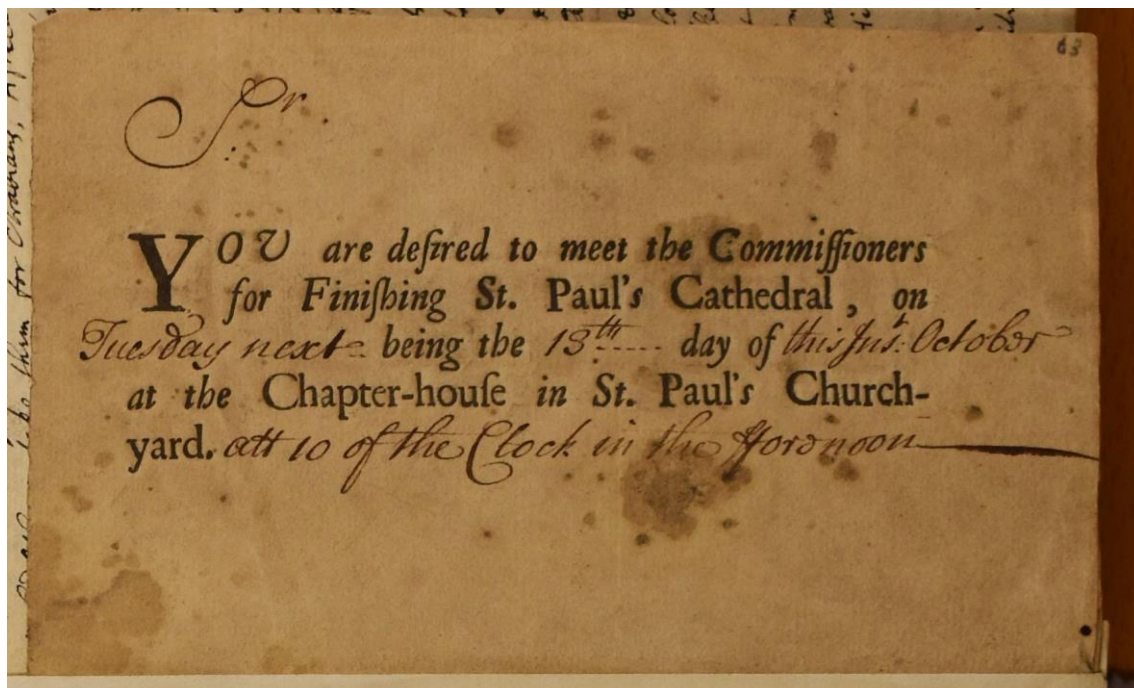 63
Sr.
YOU are deſired to meet the Commiſſioners
for Finiſhing St. Paul's Cathedral, on
Tuesday next being the 13th day of this Inst. October
at the Chapter-houſe in St. Paul's Church-
yard. att 10 of the Clock in the fforenoon
them for